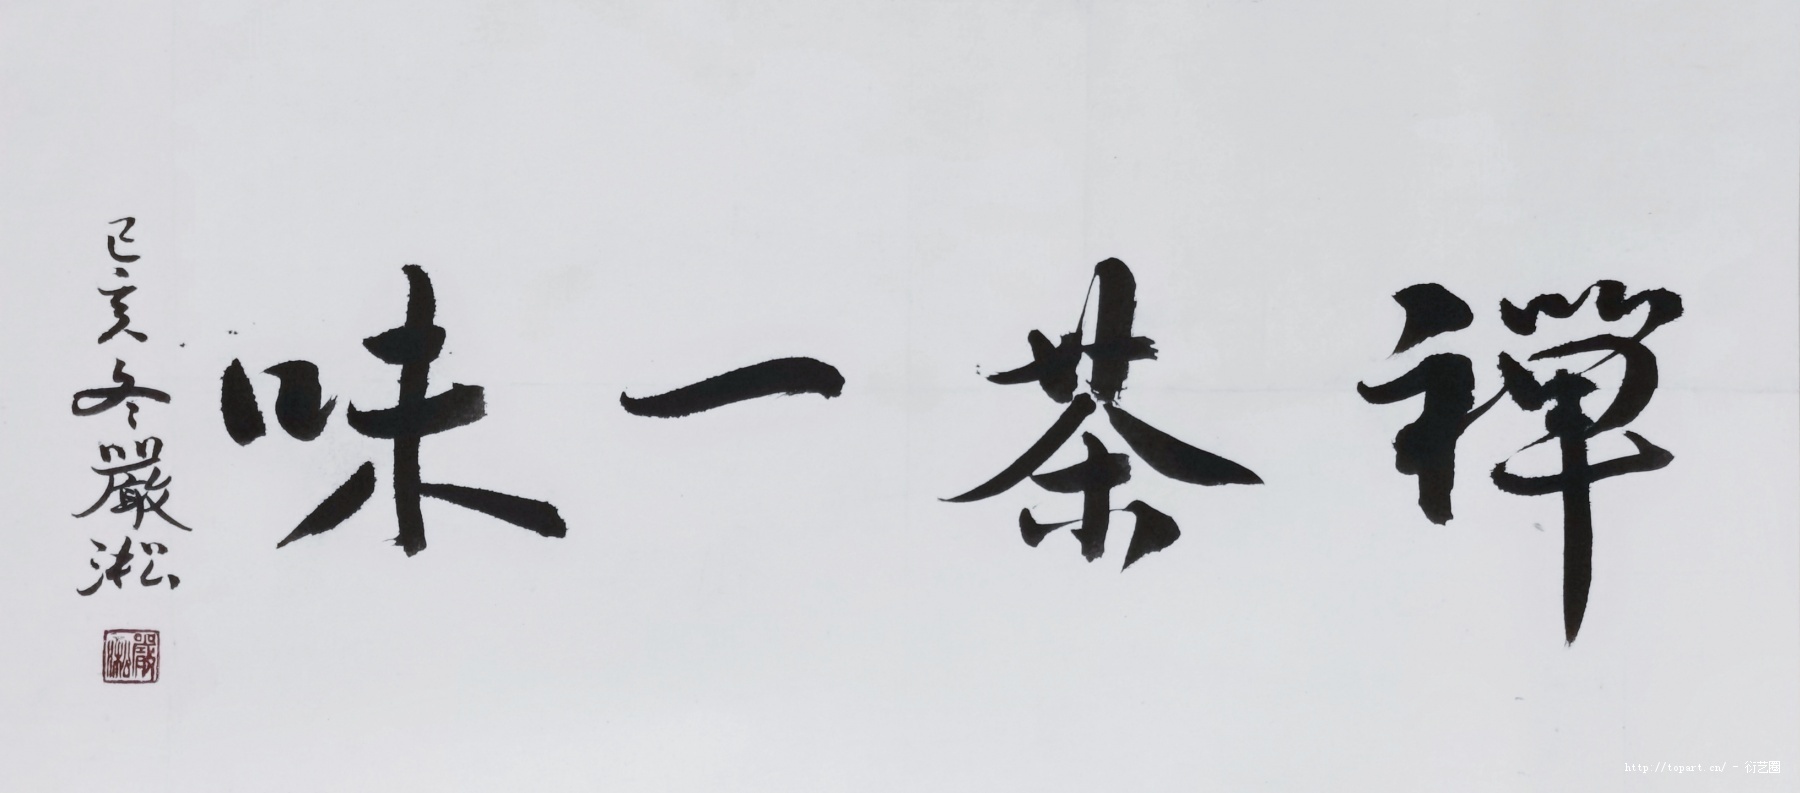 禪茶一味
己亥冬嚴淞
嚴淞
http://topart.cn/ - 衍艺圈